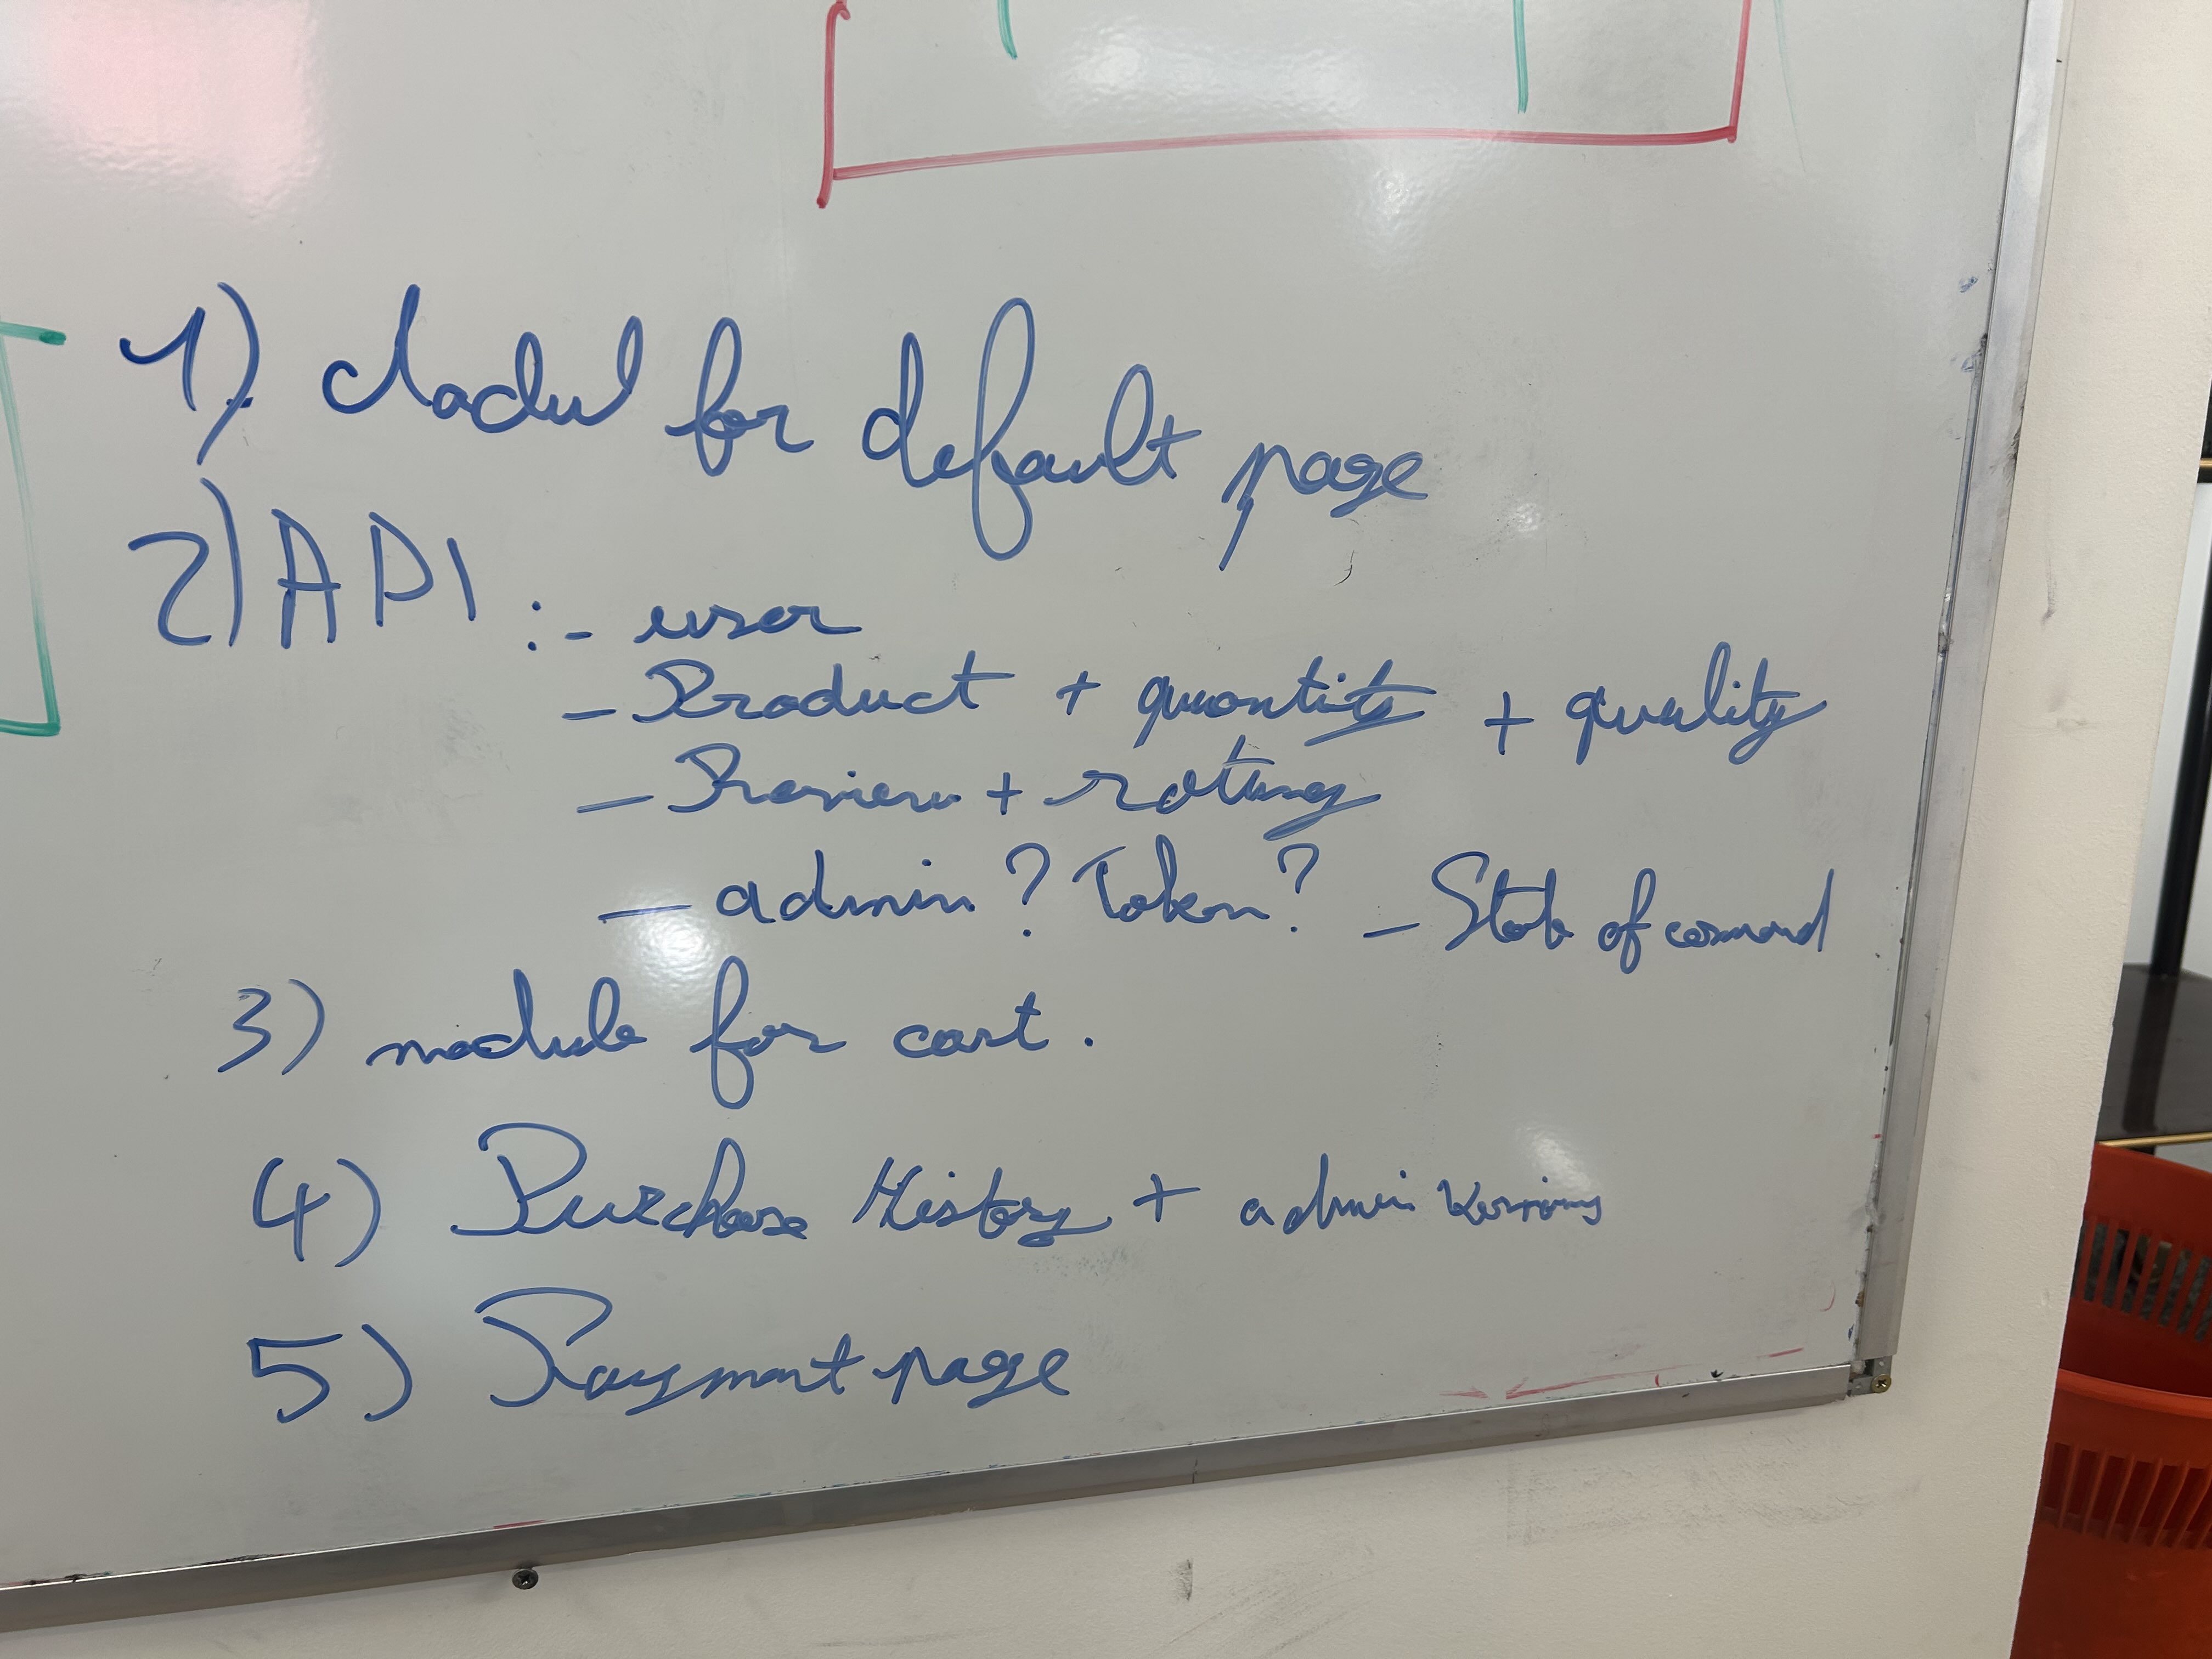 1) Modul for default page
2) API : - user
- Product + quantity + quality
- Review + rating
- admin ? Token ? - State of command
3) module for cart.
4) Purchase History + admin
5) Payment page